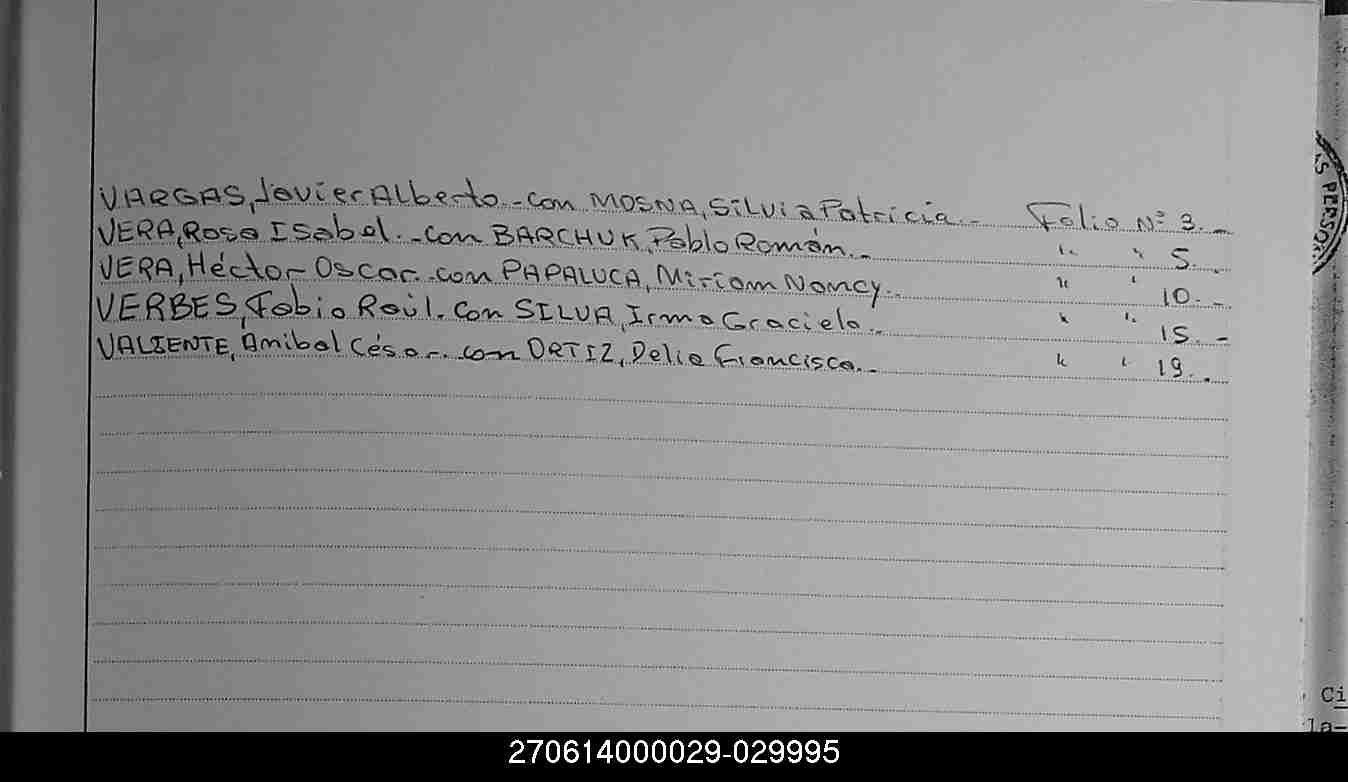 VARGAS, Javier Alberto.-con MOSNA, Silvia Patricia.- Folio Nº 3.-
VERA, Rosa Isabel.-con BARCHUK, Pablo Román.- " " 5.-
VERA, Héctor Oscar.-con PAPALUCA, Miriam Nancy.- " " 10.-
VERBES, Fabio Raúl.con SILVA, Irma Graciela.- " " 15.-
VALIENTE, Anibal César.-con ORTIZ, Delia Francisca.- " " 19.-
AS PERSON
Ci
la-
270614000029-029995